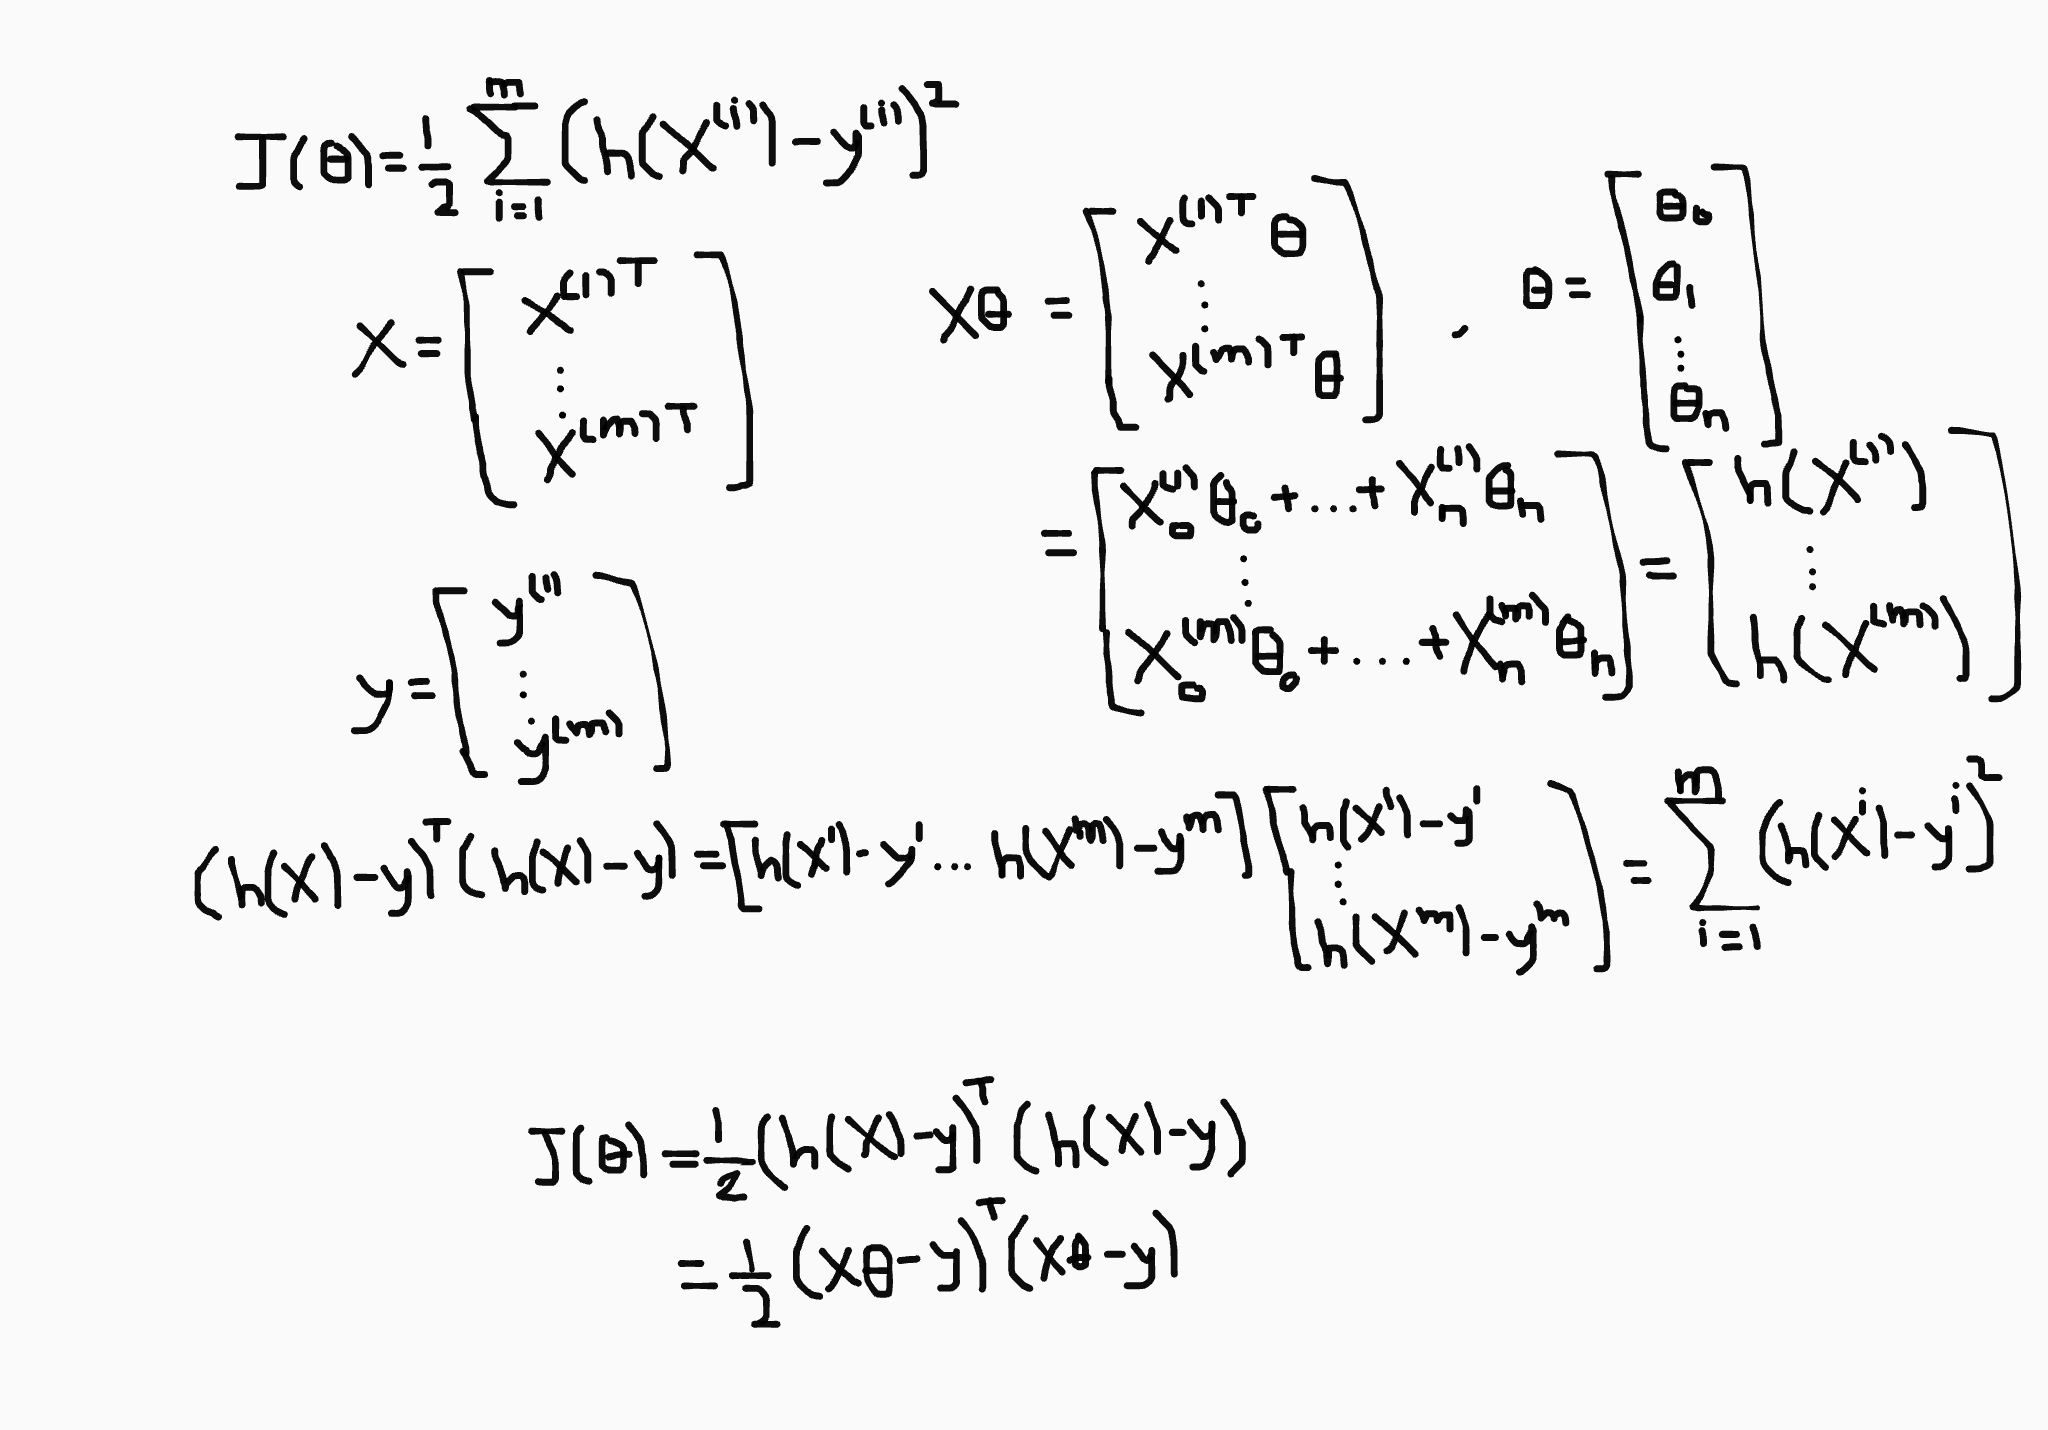 J(θ) = 1/2 ∑_{i=1}^{m} (h(x^{(i)}) - y^{(i)})^2
X = [x^{(1)T} ⋮ x^{(m)T}]
Xθ = [x^{(1)T} θ ⋮ x^{(m)T} θ] , θ = [θ_0 θ_1 ⋮ θ_n]
= [x_0^{(1)} θ_0 + ... + x_n^{(1)} θ_n ⋮ x_0^{(m)} θ_0 + ... + x_n^{(m)} θ_n] = [h(x^{(1)}) ⋮ h(x^{(m)})]
y = [y^{(1)} ⋮ y^{(m)}]
(h(x) - y)^T (h(x) - y) = [h(x^1) - y^1 ... h(x^m) - y^m] [h(x^1) - y^1 ⋮ h(x^m) - y^m] = ∑_{i=1}^{m} (h(x^i) - y^i)^2
J(θ) = 1/2 (h(x) - y)^T (h(x) - y)
= 1/2 (xθ - y)^T (xθ - y)